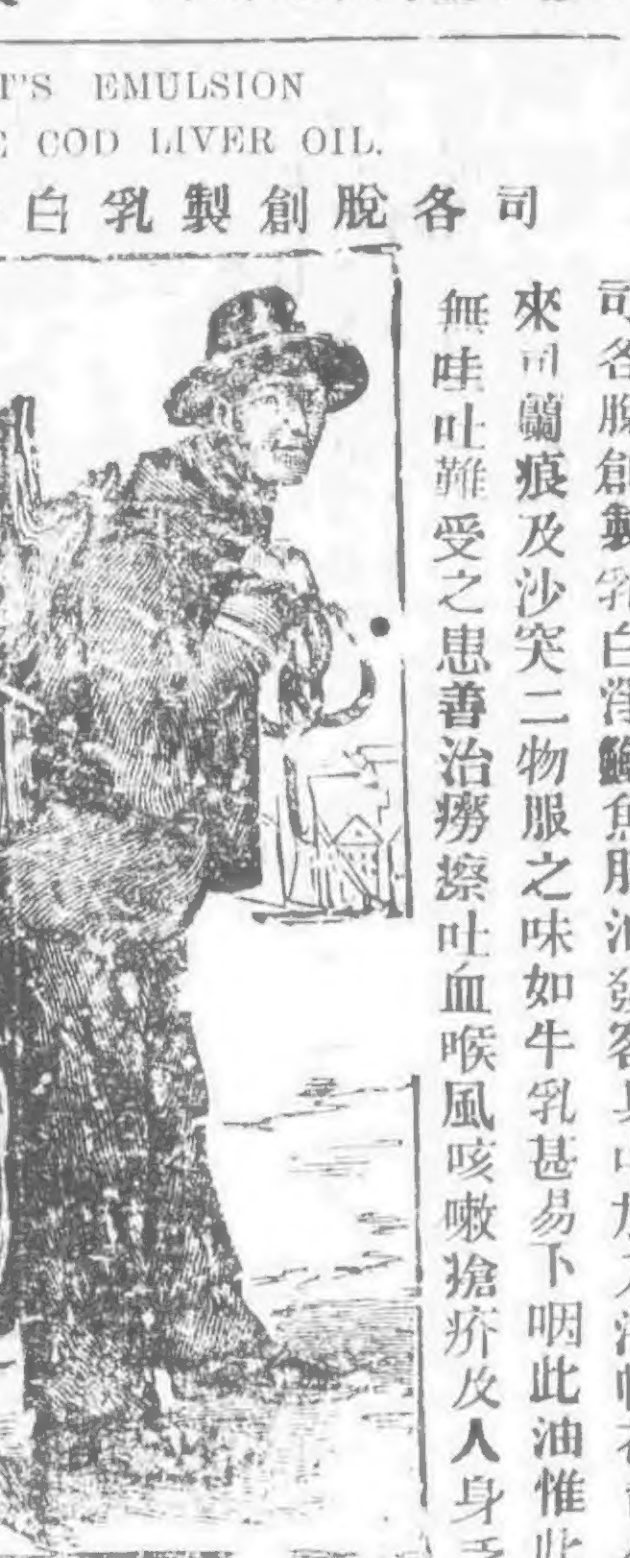 T'S EMULSION
COD LIVER OIL.
司各脫創製乳白
司各脫創製乳白淨鰵魚肝油發客其中加入
來司蘭痕及沙突二物服之味如牛乳甚易下咽此油惟此
無哇吐難受之患善治癆瘵吐血喉風咳嗽瘡疥及人身